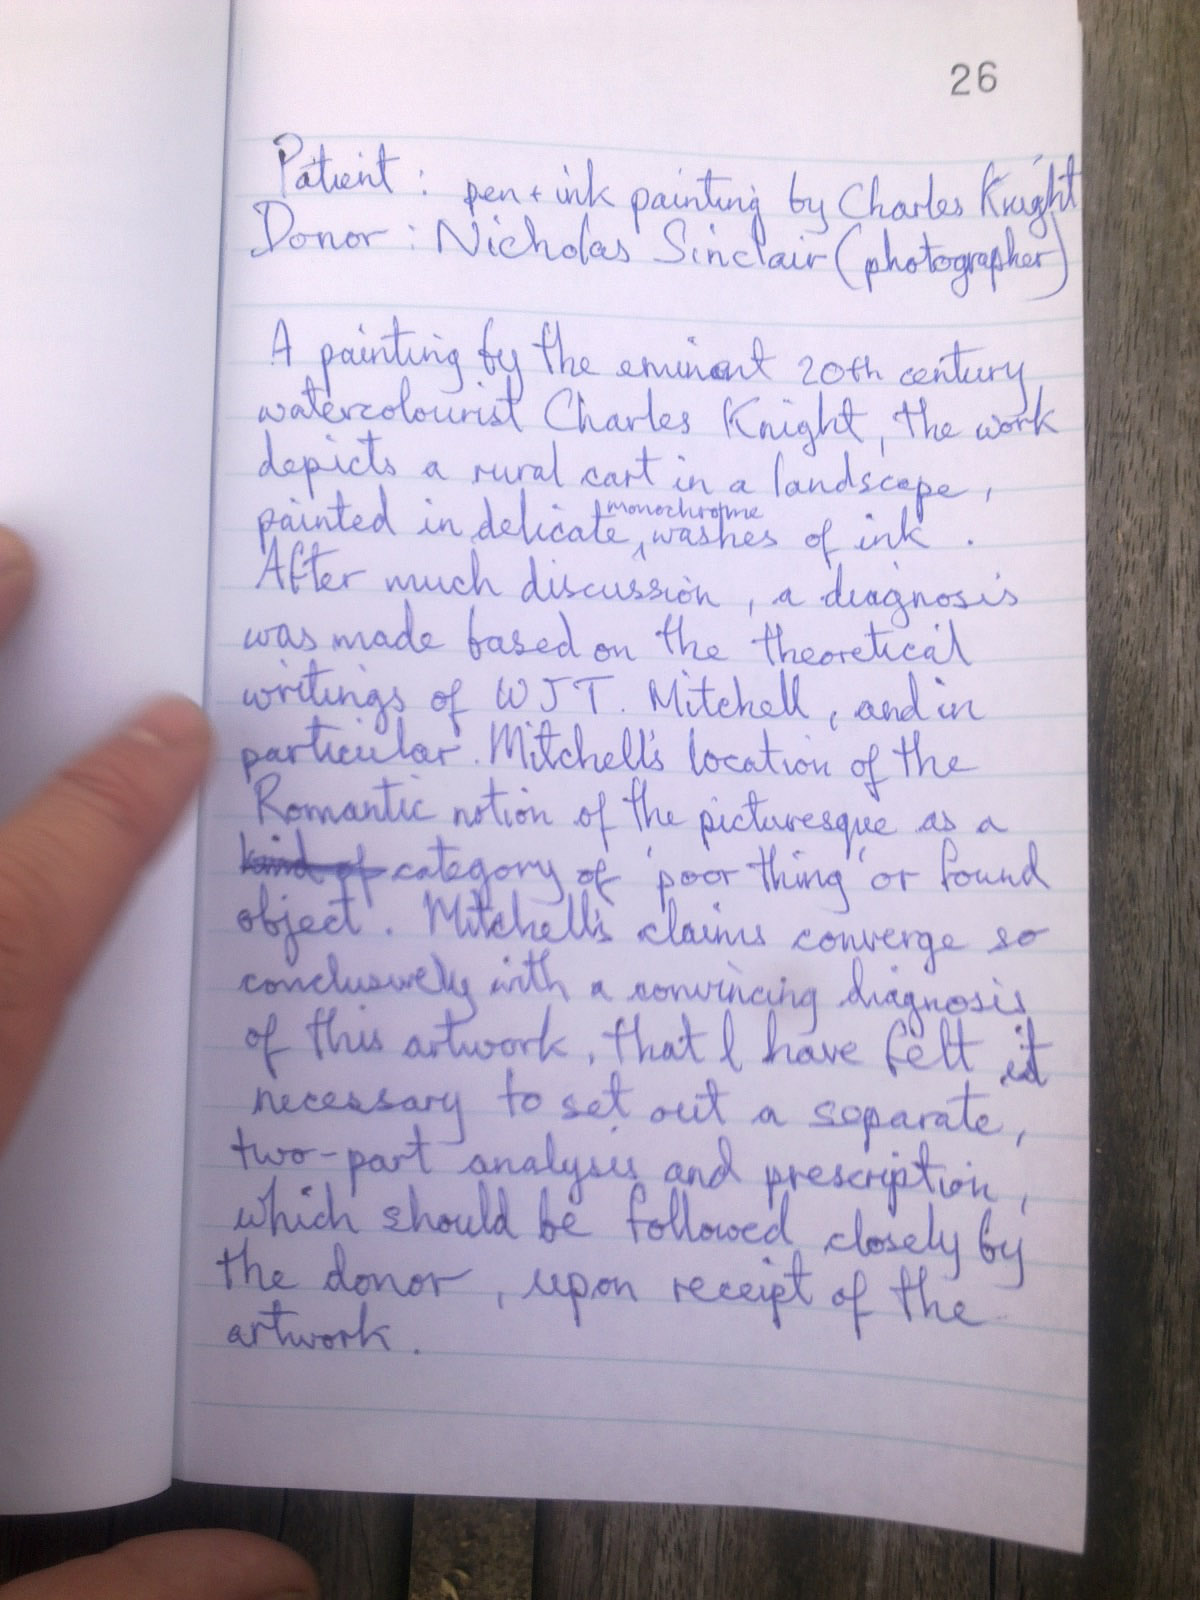 26
Patient : pen + ink painting by Charles Knight
Donor : Nicholas Sinclair (photographer)
A painting by the eminent 20th century
watercolourist Charles Knight, the work
depicts a rural cart in a landscape,
monochrome
painted in delicate washes of ink .
After much discussion, a diagnosis
was made based on the theoretical
writings of WJT. Mitchell, and in
particular. Mitchell's location of the
Romantic notion of the picturesque as a
kind of category of 'poor thing' or found
object. Mitchell's claims converge so
conclusively with a convincing diagnosis
of this artwork, that I have felt it
necessary to set out a separate,
two-part analysis and prescription,
which should be followed closely by
the donor, upon receipt of the
artwork.